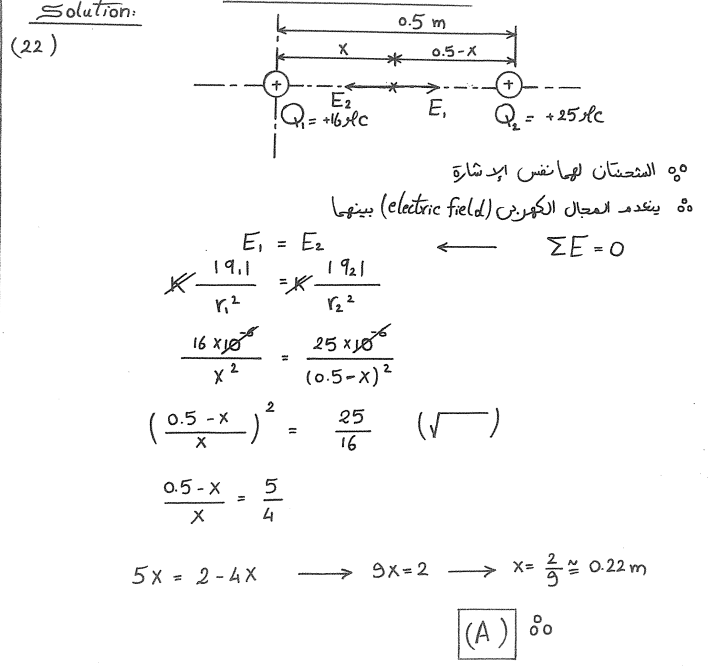 Solution:
(22)
0.5 m
x 0.5-x
+ +
E₂ E₁
Q₁ = +16 μC Q₂ = +25 μC
∵ الشحنتان لهما نفس الإشارة
∴ ينعدم المجال الكهربي (electric field) بينهما
E₁ = E₂ ← ΣE = 0
K |q₁| / r₁² = K |q₂| / r₂²
16 × 10⁻⁶ / x² = 25 × 10⁻⁶ / (0.5-x)²
(0.5 - x / x)² = 25 / 16 (√‾)
0.5 - x / x = 5 / 4
5x = 2 - 4x → 9x = 2 → x = 2/9 ≅ 0.22 m
(A) ∴